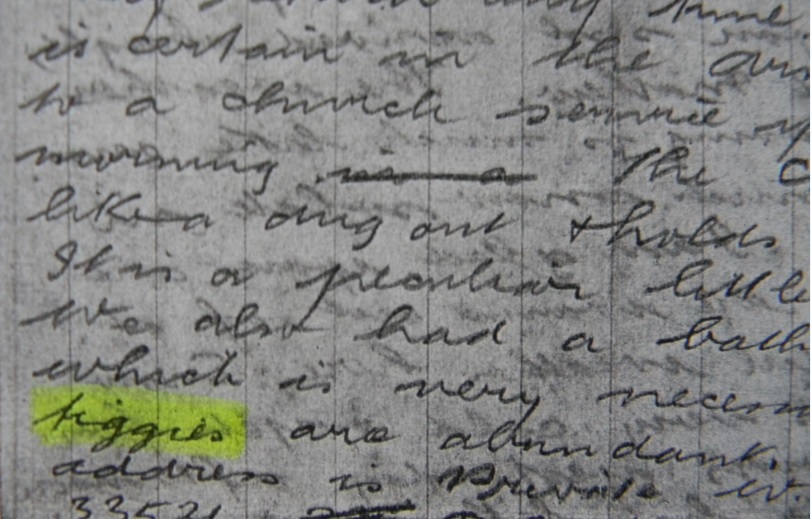 is certain in the
to a church service
morning The
like a dug out & holds
It is a peculiar little
We also had a bath
which is very
tiggies are abundant.
address is Private
33521